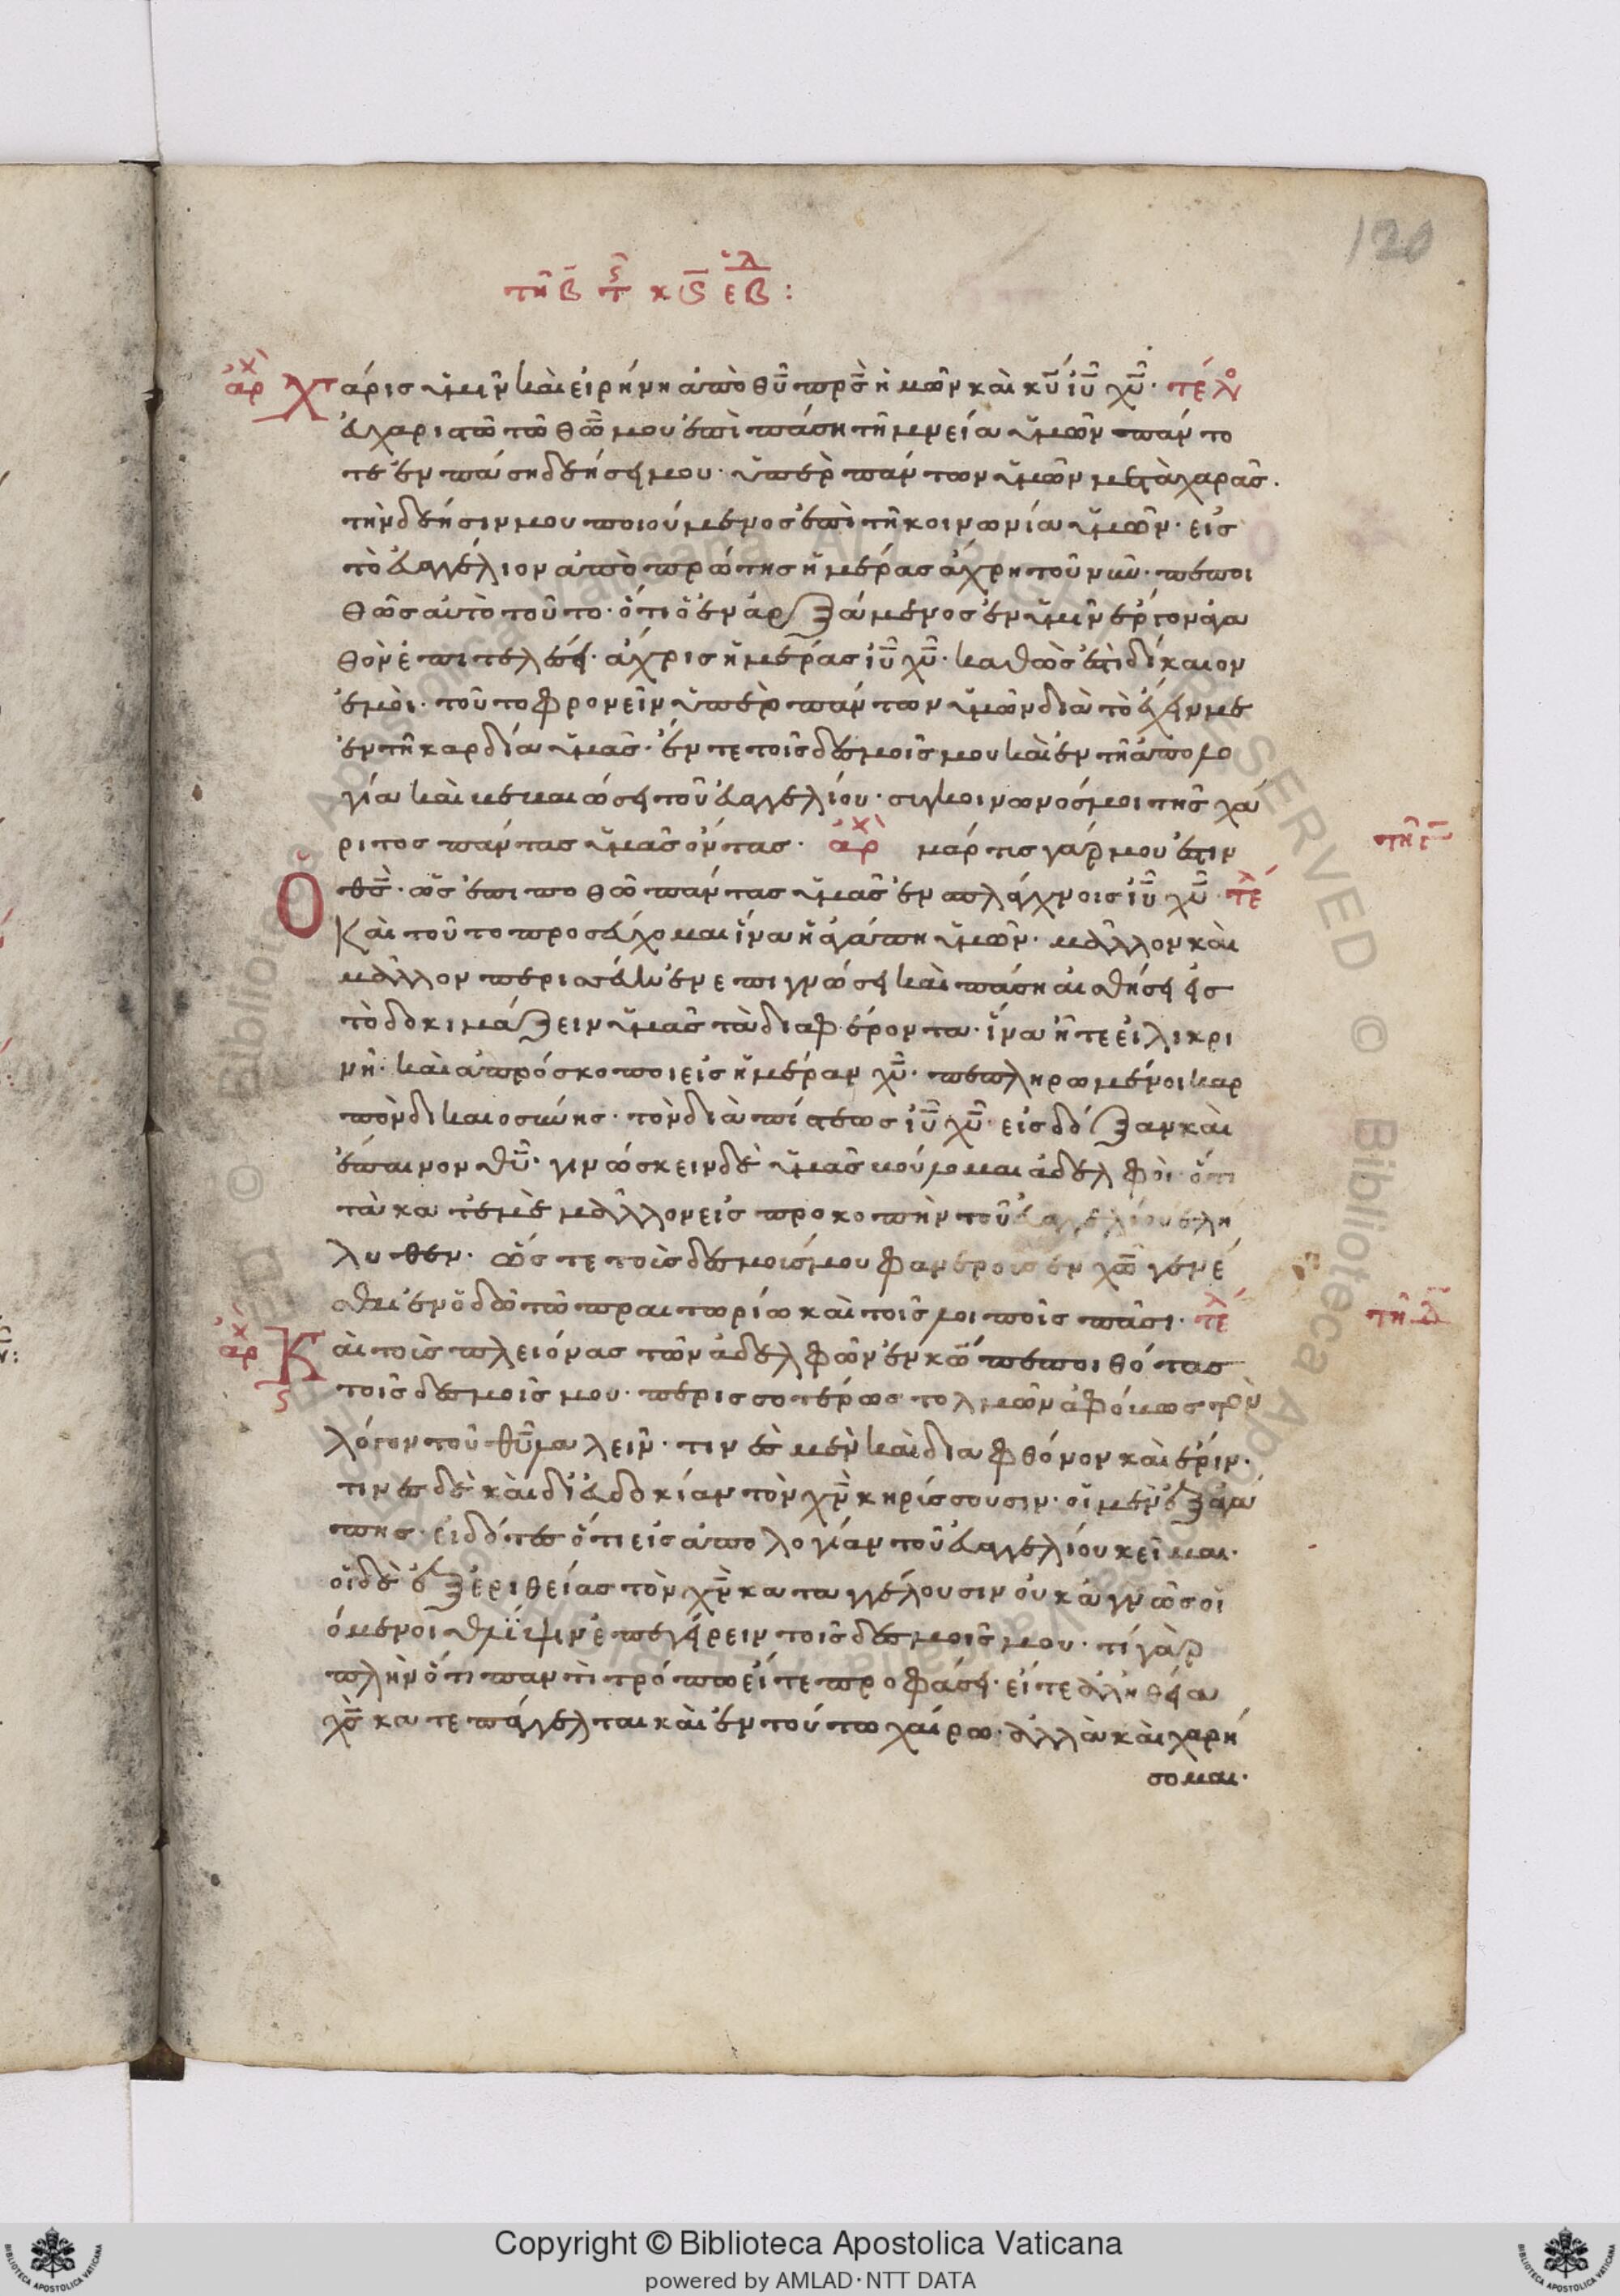 120
τῆ β τ ς κς εβδ:
ἀρχ Χάρις ὑμῖν καὶ εἰρήνη ἀπὸ θυ πρς ἡμῶν καὶ κυ ιυ χυ· τέλο
εὐχαριστῶ τῶ θω μου ἐπὶ πάση τῆ μνεία ὑμῶν παντο
τε ἐν πάση δεήσει μου· ὑπὲρ πάντων ὑμῶν μετὰ χαρᾶς.
τὴν δεήσιν μου ποιούμενος ἐπὶ τῆ κοινωνία ὑμῶν· εἰς
τὸ εὐαγγέλιον ἀπὸ πρώτης ἡμέρας ἄχρη τοῦ νῦν· πεποι
θῶς αὐτὸ τοῦτο· ὅτι ὁ ἐναρξάμενος ἐν ὑμῖν έργον ἀγα
θὸν ἐπιτελέσει· ἄχρις ἡμέρας ιυ χυ· καθὼς ἐστὶ δίκαιον
ἐμὸι· τοῦτο φρονεῖν ὑπὲρ πάντων ὑμῶν διὰ τὸ ἔχειν με
ἐν τῆ καρδία ὑμᾶς· ἔν τε τοῖς δεσμοῖς μου καὶ ἐν τῆ ἀπολο
γία καὶ βεβαιώσει τοῦ εὐαγγελίου· συγκοινωνοὺς μοι τῆς χά
ριτος πάντας ὑμᾶς ὄντας· ἀρχ μάρτις γάρ μου ἐστιν
τῆ γ
Ὁ θς· ὡς ἐπιποθῶ πάντας ὑμᾶς ἐν σπλάγχνοις ιυ χυ· τέλ
Καὶ τοῦτο προσεύχομαι ἵνα ἡ ἀγάπη ὑμῶν· μᾶλλον καὶ
μᾶλλον περισσεύη ἐν επιγνώσει καὶ πάση αἰσθήσει εἰς
τὸ δοκιμάζειν ὑμᾶς τὰ διαφέροντα· ἵνα ἦτε εἰλικρι
νῆ· καὶ ἀπρόσκοποι εἰς ἡμέραν χυ· πεπληρωμένοι καρ
πὸν δικαιοσύνης· τὸν διὰ πίστεως ιυ χυ· εἰς δόξαν καὶ
ἔπαινον θυ· γινώσκειν δὲ ὑμᾶς βούλομαι ἀδελφοὶ· ὅτι
τὰ κατ ἐμὲ μᾶλλον εἰς προκοπὴν τοῦ εὐαγγελίου ἐλή
λυθεν· ὥς τε τοὶς δεσμοὶς μου φανέροις ἐν χω γενέ
σθαι ἐν ὅλω τῶ πραιτωρίω καὶ τοῖς λοιποῖς πᾶσι· τέλ
τῆ δ
ἀρχ Καὶ τοὶς πλειόνας τῶν ἀδελφῶν ἐν κω πεποιθότας
τοῖς δεσμοῖς μου· περισσοτέρως τολμῶν ἀφόβως τὸν
λόγον τοῦ θυ λαλεῖν· τινὲς μὲν καὶ δια φθόνον καὶ ἔριν·
τινὲς δὲ καὶ δι εὐδοκίαν τὸν χν κηρίσσουσιν· οἱ μὲν ἐξ ἀγά
πης· εἰδότες ὅτι εἰς ἀπολογίαν τοῦ εὐαγγελίου κεῖμαι·
οἱ δὲ ἐξ ἐριθείας τὸν χν καταγγέλουσιν οὐκ ἁγνῶς οἱ
όμενοι θλίψιν ἐπεγείρειν τοῖς δεσμοῖς μου· τί γὰρ
πλὴν ὅτι παντὶ τρόπω εἴτε προφάσει· εἴτε ἀληθεία
χς κατεπάγγελται καὶ ἐν τούτω χαίρω· ἀλλὰ καὶ χαρή
σομαι·
Copyright © Biblioteca Apostolica Vaticana
powered by AMLAD·NTT DATA